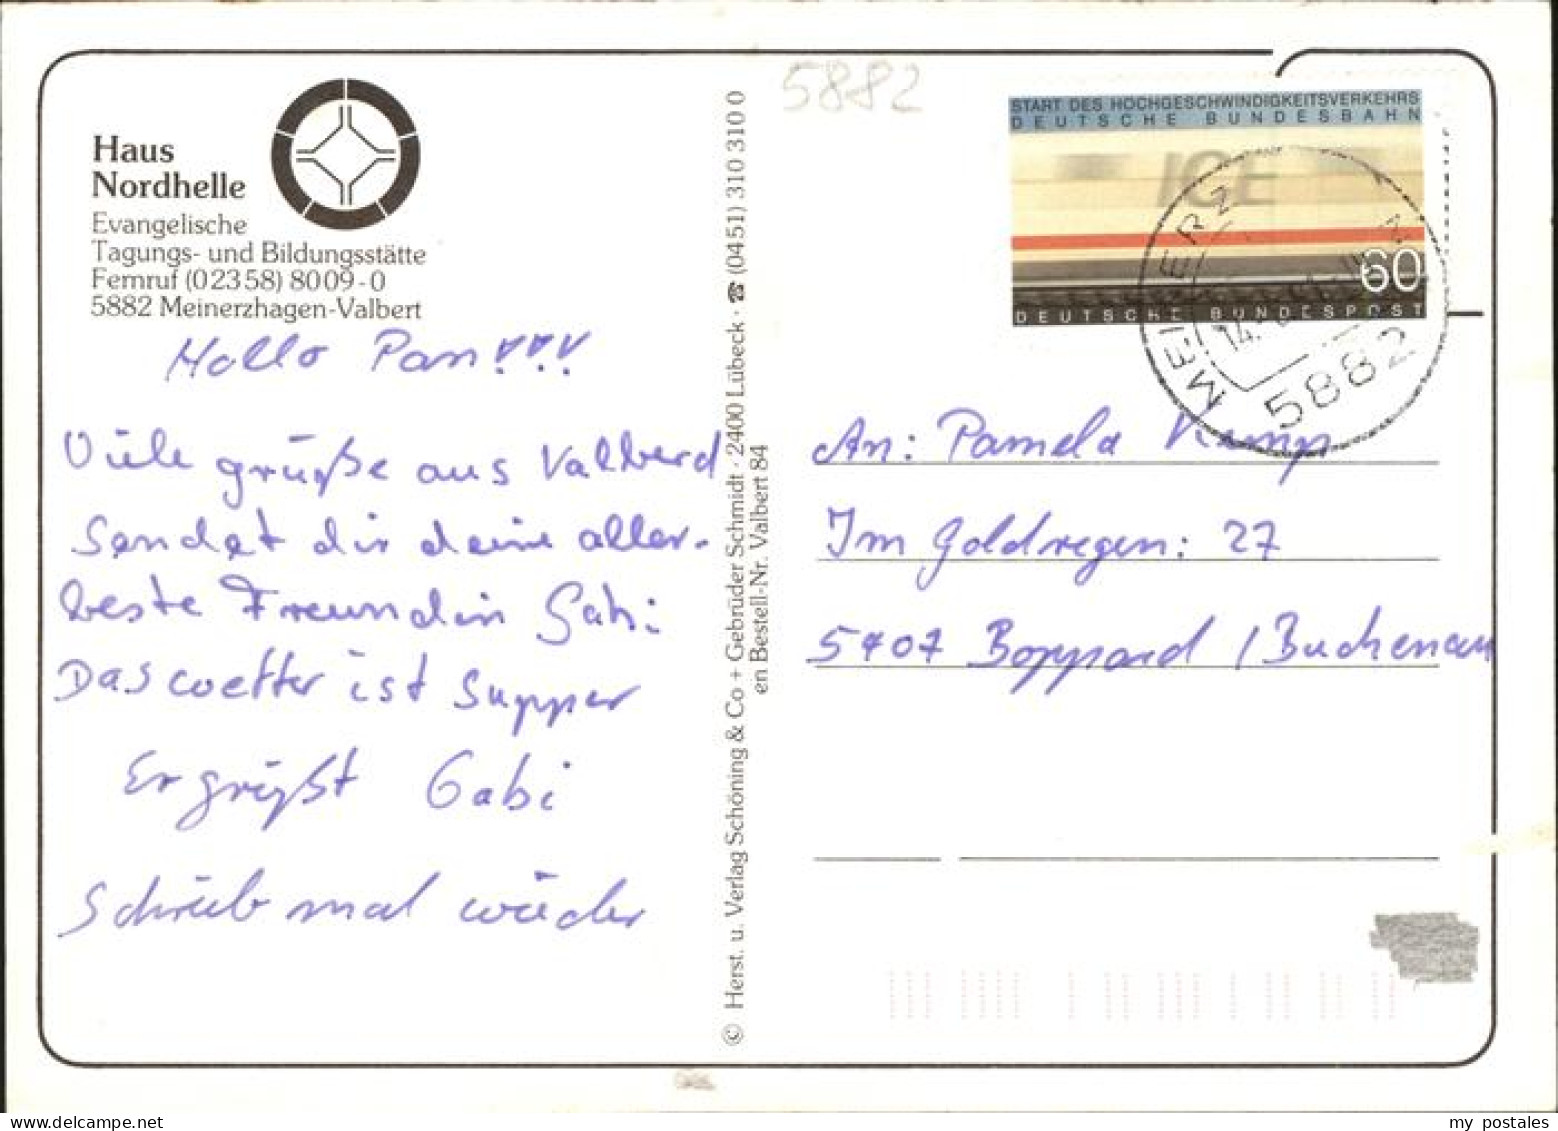 5882
Haus
Nordhelle
Evangelische
Tagungs- und Bildungsstätte
Fernruf (02358) 8009-0
5882 Meinerzhagen-Valbert
Hallo Pam!!!
Viele grüße aus Valberd
Sendet dir deine aller-
beste Freundin Gabi
Das wetter ist supper
Er grüßt Gabi
Schreib mal wieder
© Herst. u. Verlag Schöning & Co + Gebrüder Schmidt · 2400 Lübeck · ☎ (0451) 310 310 0
en Bestell-Nr. Valbert 84
START DES HOCHGESCHWINDIGKEITSVERKEHRS
DEUTSCHE BUNDESBAHN
ICE
60
DEUTSCHE BUNDESPOST
MEINERZ
5882
An: Pamela Kump
Im Goldregen: 27
5407 Boppard / Buchenau
my postales